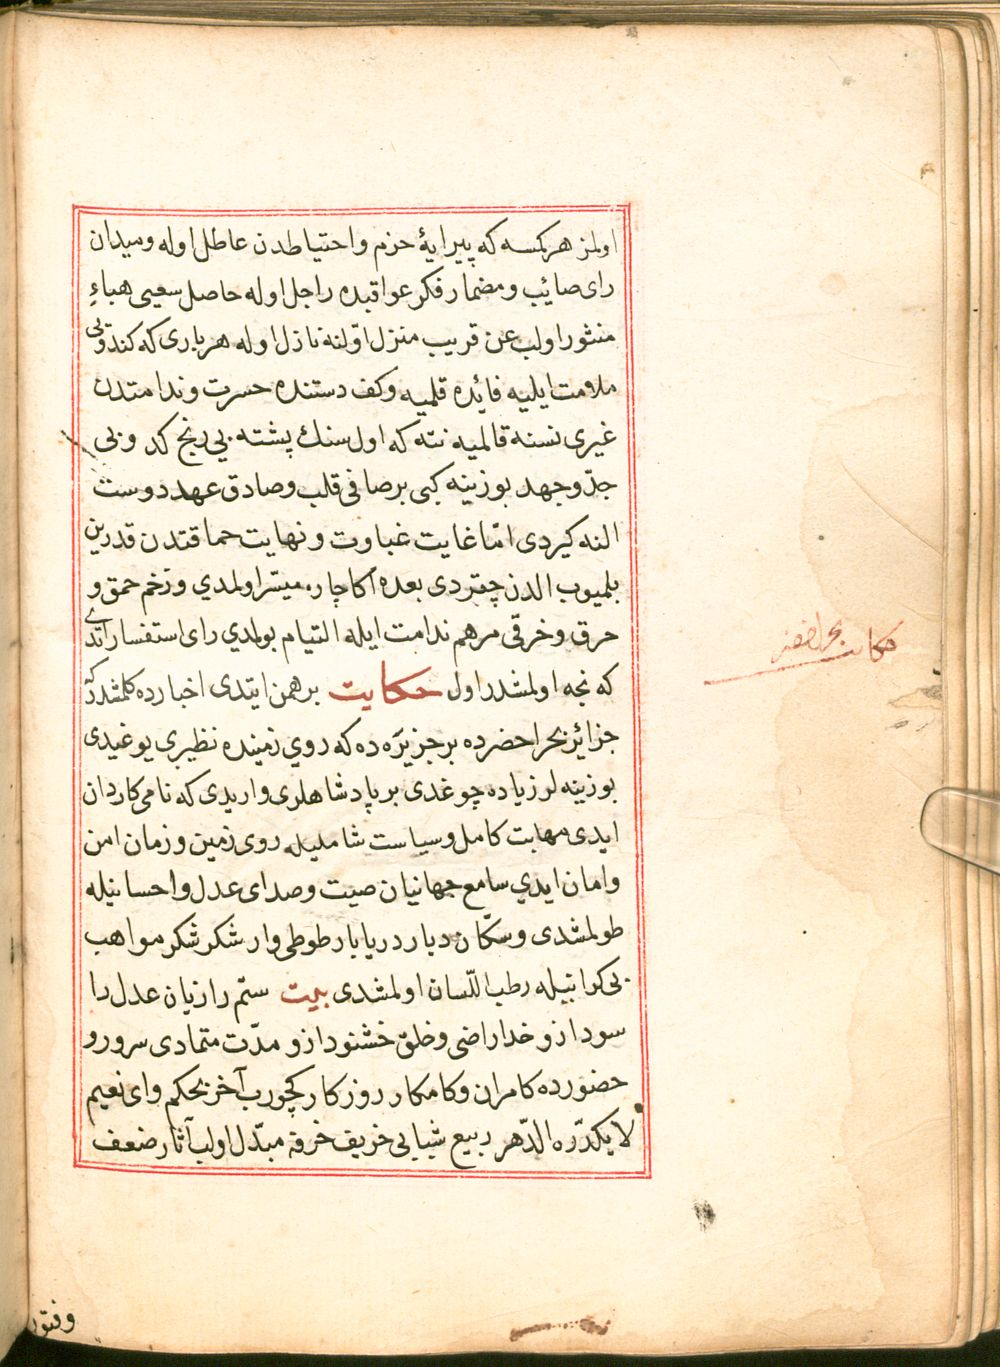 اولمز هر كمسه كه پیرایهٔ حزم و احتیاطدن عاطل اوله و میدان
رای صائب و مضمار فكر عواقبده راجل اوله حاصل سعیی هباءِ
منثور اولب عن قریب منزل اوّلنه نازل اوله هر باری كه كندویی
ملامت ایلیه فائده قلمیه و كف دستنده حسرت و ندامتدن
غیری نسنه قالمیه نته كه اول سنك پشته بی رنج كد و بی
جدّ و جهد بوزینه كبی بر صافی قلب و صادق عهد دوست
النه كیردی امّا غایت غباوت و نهایت حماقتدن قدرین
بلمیوب الدن چقردی بعده اكا چاره میسّر اولمدی و زخم حمق و
حرق و خرقی مرهم ندامت ایله التیام بولمدی رای استفسار اتدی
كه نجه اولمشدر اول حكایت برهمن ایتدی اخبارده كلمشدركه
جزائر بحر اخضرده بر جزیرَه ده كه روی زمینده نظیری یوغیدی
بوزینه لر زیاده چوغدی بر پادشاهلری واریدی كه نامی كاردان
ایدی مهابت كامل و سیاست شاملیله روی زمین و زمان امن
و امان ایدی سامع جهانیان صیت و صدای عدل و احسانیله
طولمشدی و سكّان دیار دریا بار طوطی وار شكر شكر مواهب
بی كرانیله رطب اللّسان اولمشدی بیت ستم را زیان عدل را
سود ازو خدا راضی و خلق خشنود ازو مدّت متمادی سرور و
حضورده كامران و كامكار روزكار كچورب آخر بحكم و ای نعیم
لا یكدّره الدّهر ربیع شبابی خریف خرفه مبدّل اولب آثار ضعف
و فتور
حكایت بحر اخضر